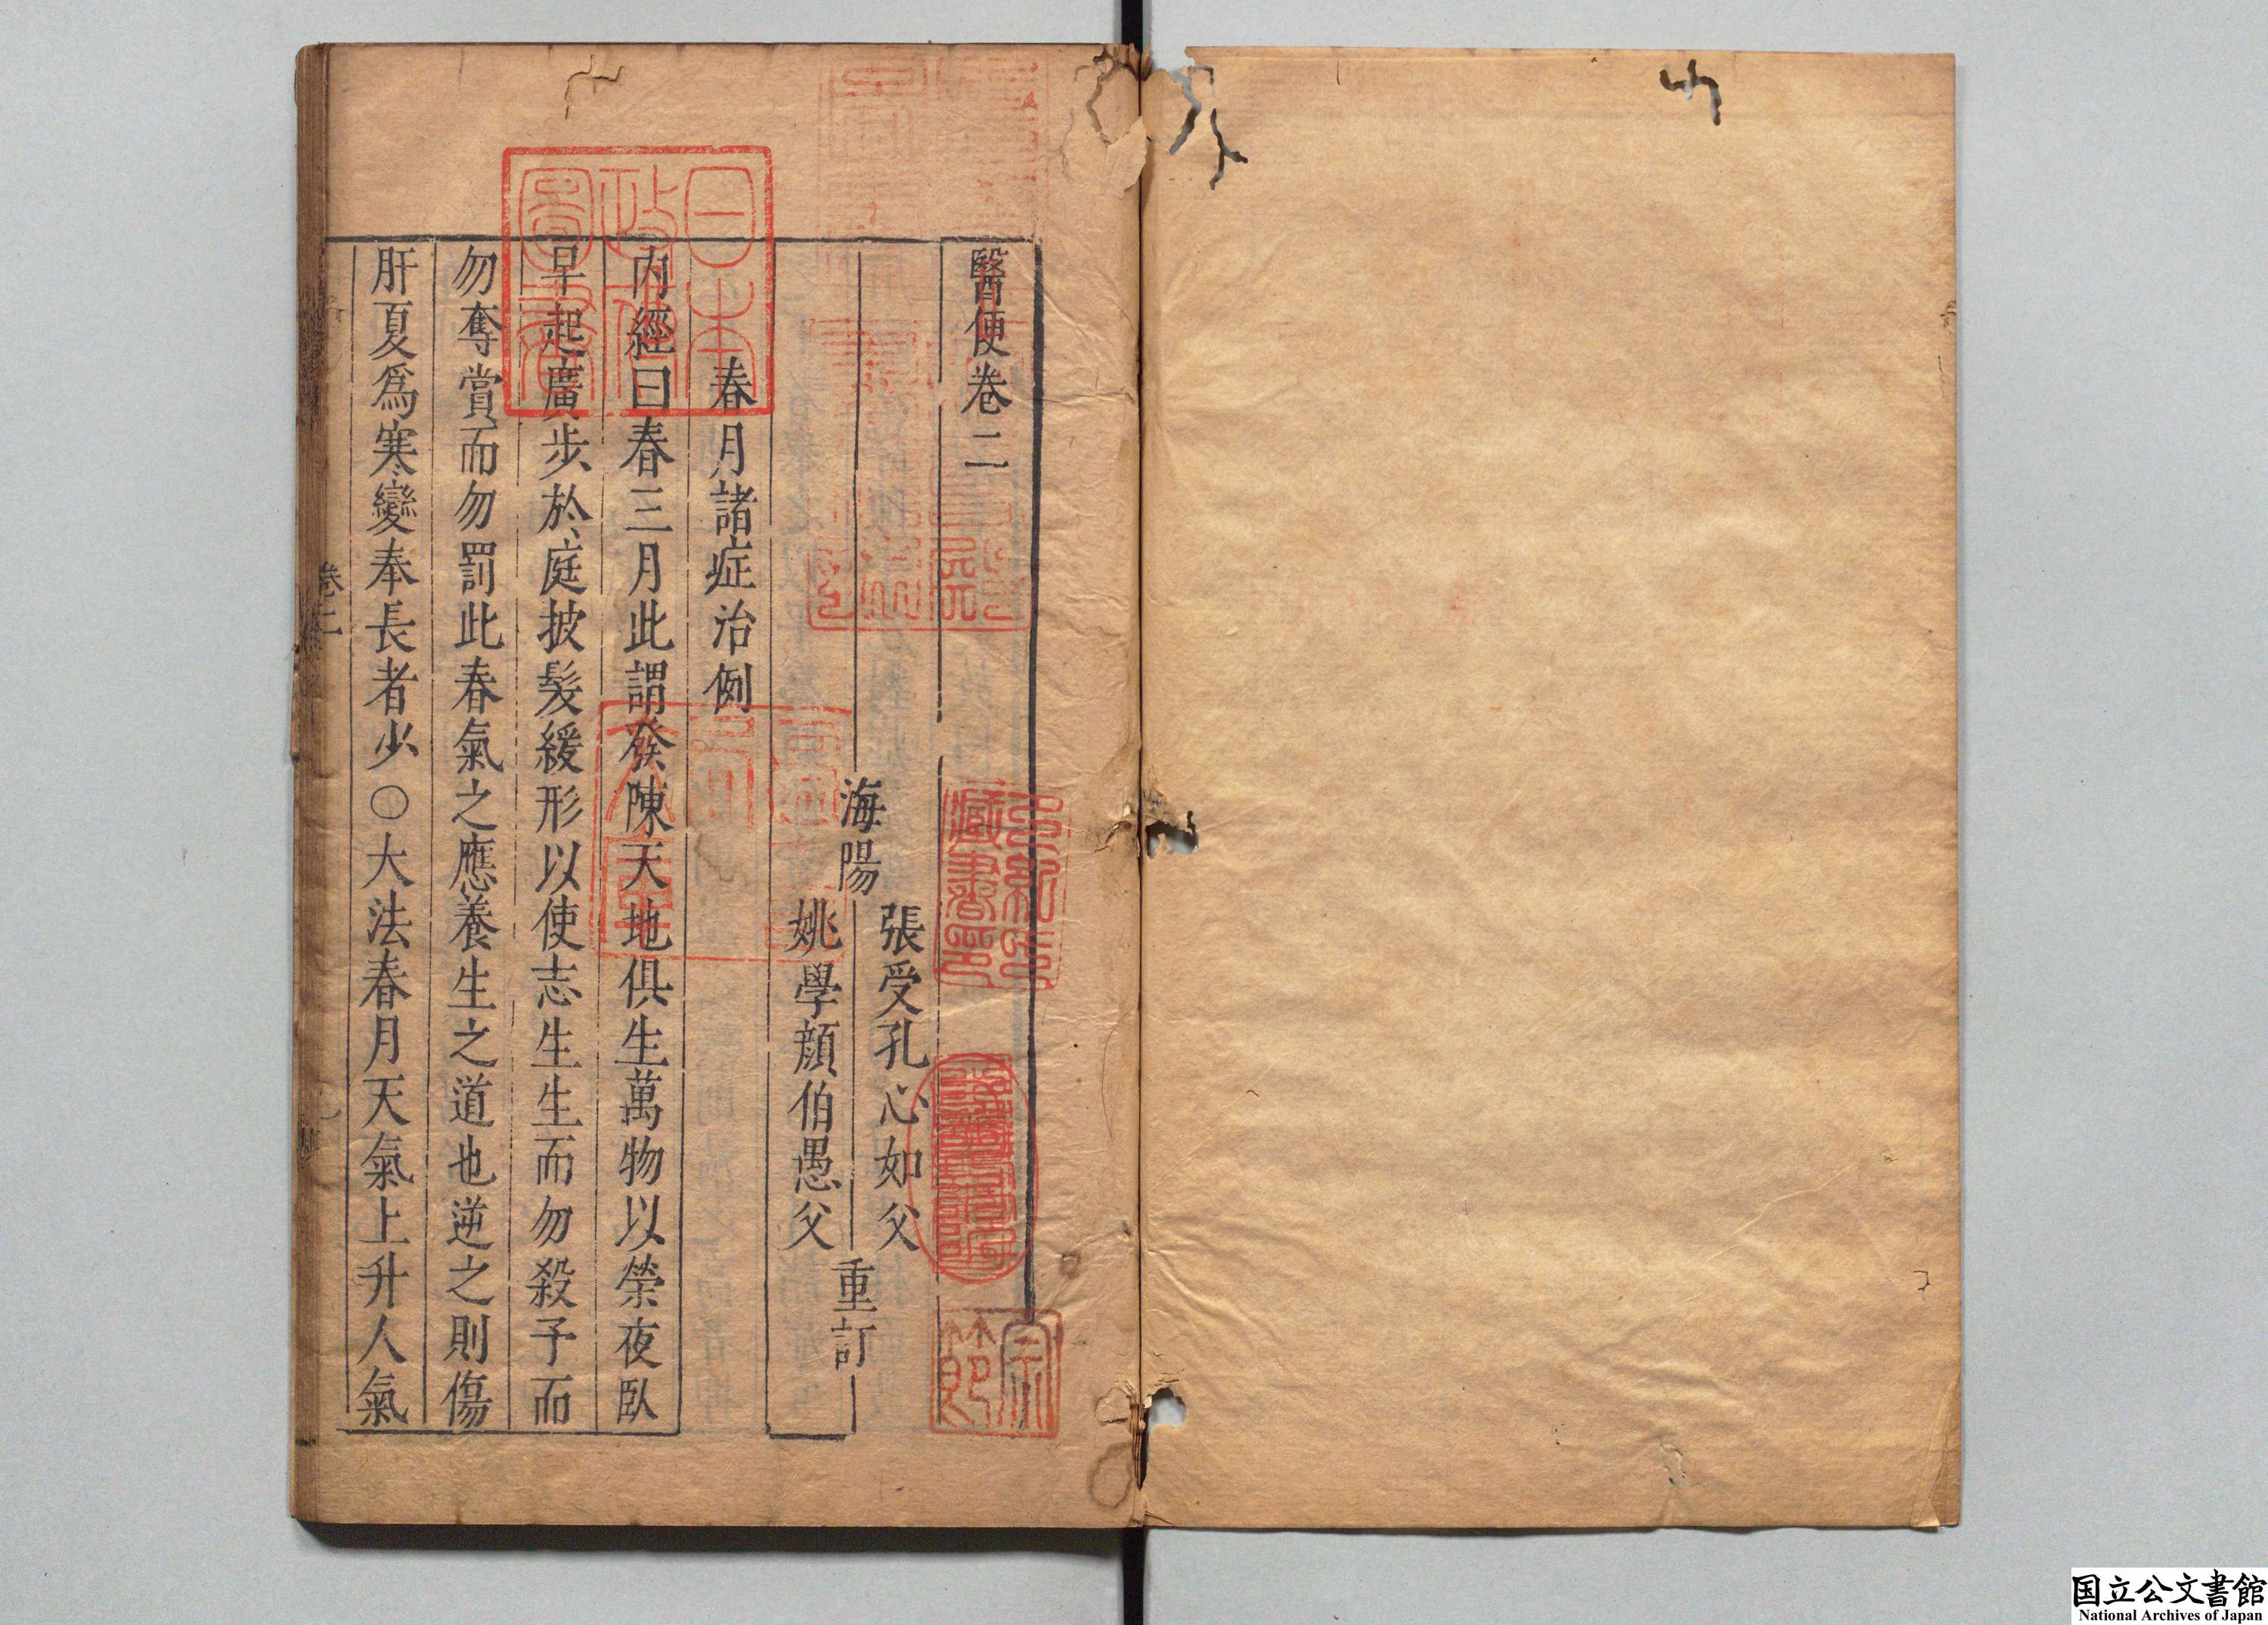 醫便卷二
海陽
張受孔心如父
姚學顏伯愚父
重訂
春月諸症治例
內經曰春三月此謂發陳天地俱生萬物以榮夜臥
早起廣步於庭披髮緩形以使志生生而勿殺予而
勿奪賞而勿罰此春氣之應養生之道也逆之則傷
肝夏爲寒變奉長者少○大法春月天氣上升人氣
卷二
日本政府圖書
藏書
国立公文書館
National Archives of Japan